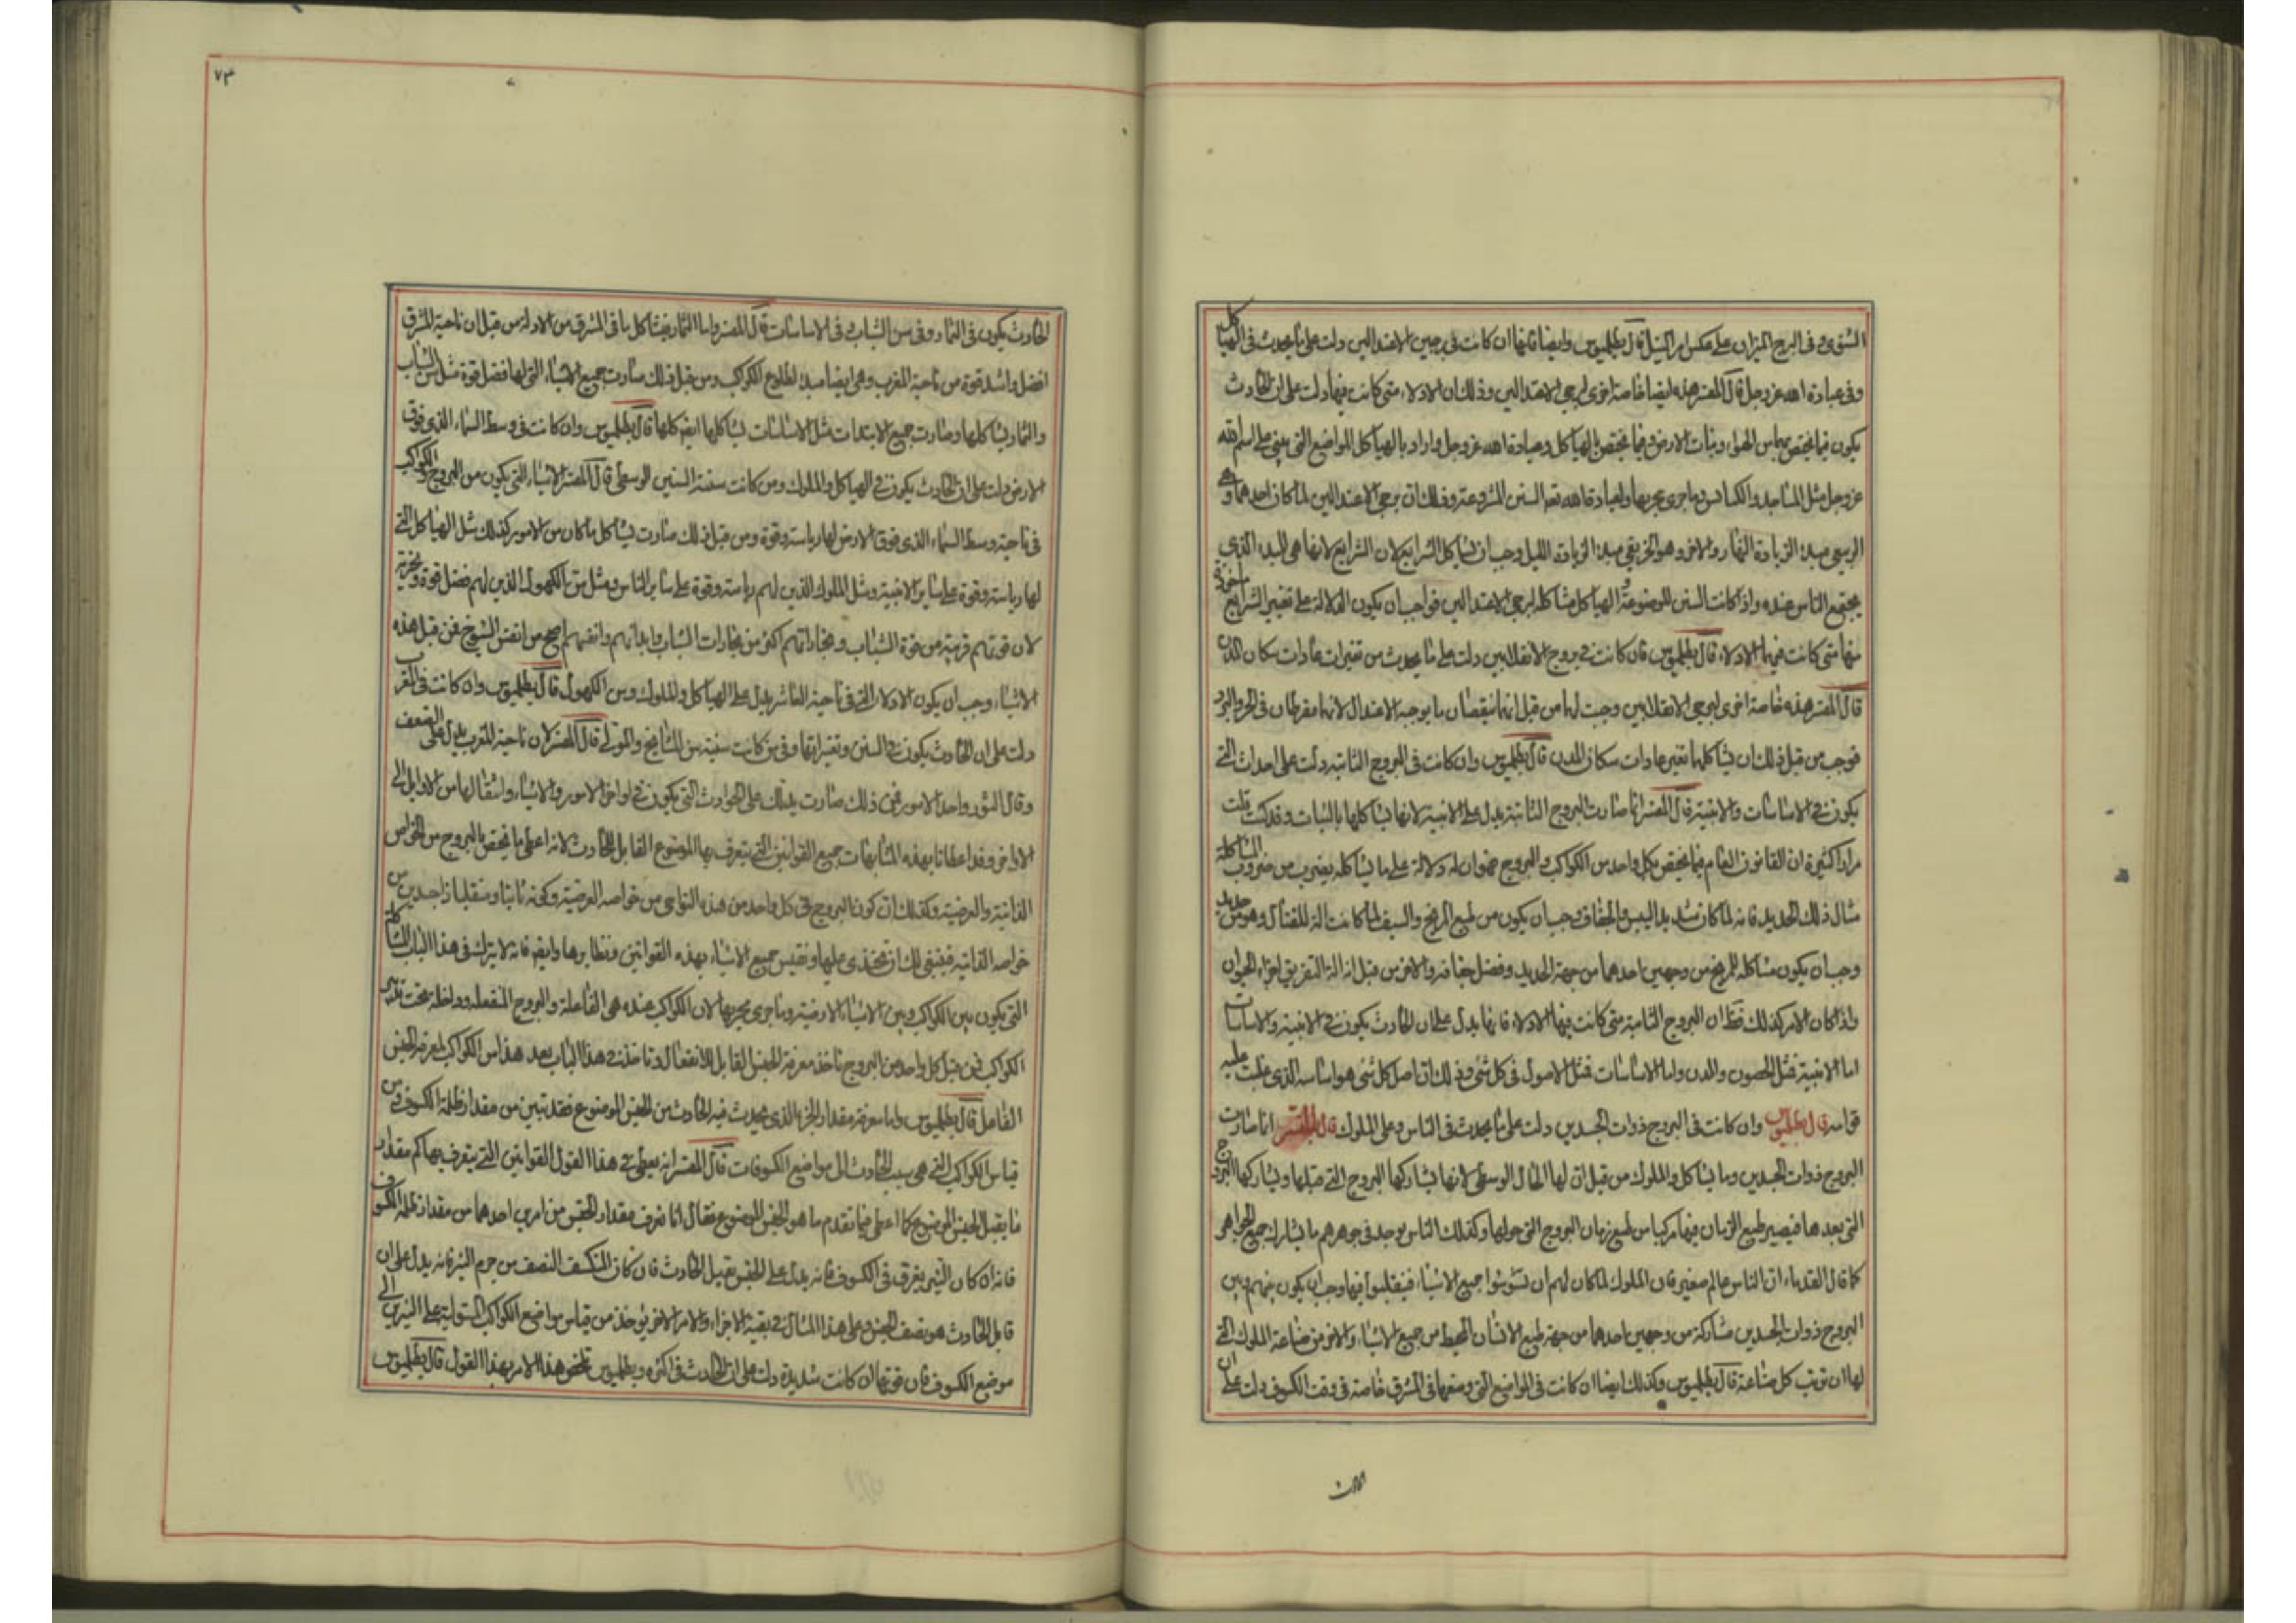 الشتوى وفى البرج الميزان على عكس امر الميل قال بطلميوس وايضا فانها ان كانت فى برجين الاعتدالين دلت على ما يحدث فى الهياكل
وفى عبادة الله عز وجل قال المفسر هذه ايضا خاصة اخرى لبرجى الاعتدالين وذلك ان الادلاء متى كانت فيها دلت على ان الحادث
يكون فيما يختص بها من الهواء ونبات الارض وفيما يختص بالهياكل وعبادة الله عز وجل واراد بالهياكل المواضع التى يبنى على اسم الله
عز وجل مثل المساجد والكنائس وما جرى مجريها ولعبادة الله تعه السنن المشروعة وذلك ان برجى الاعتدالين لما كان احدهما وهو
الربيعى مبدء الزيادة النهار والاخر وهو الخريفى مبدء الزيادة الليل وجب ان تشاكل الشرايع لان الشرايع لانها هى البدء الذى
يجتمع الناس عنده واذا كانت السنن الموضوعة و الهياكل مشاكلة لبرجى الاعتدالين فواجب ان يكون الدلالة على تغيير الشرايع
منها متى كانت فيهما الادلاء قال بطلميوس فان كانت فى بروج الانقلابين دلت على ما يحدث من تغيرات عادات سكان المدن
قال المفسر هذه خاصة اخرى لبرجى الانقلابين وجبت لها من قبل انها ينقصان ما يوجبه الاعتدال لانها مفرطان فى الحر والبرد
فوجب من قبل ذلك ان يشاكلها تغير عادات سكان المدن قال بطلميوس وان كانت فى البروج الثابتة دلت على احداث التى
يكون فى الاساسات والابنية قال المفسر انما صارت البروج الثابتة يدل على الابنية لانها يشاكلها بالثبات وقد كنت قلت
مرارا كثيرة ان القانون العام فيما يختص بكل واحد من الكواكب والبروج هو ان له دلالة على ما يشاكله بضرب من ضروب المشاكلة
مثال ذلك الحديد فانه لما كان شديد اليبس والجفاف وجب ان يكون من طبع المريخ والسيف لما كانت الة للقتال وهو من حديد
وجب ان يكون مشاكله للمريخ من وجهين احدهما من جهة الحديد وفضل جفافه والاخر من قبل انه الة التفريق اجزاء الحيوان
واذا كان الامر كذلك فظ ان البروج الثابتة متى كانت فيها الادلاء فانها يدل على ان الحادث يكون فى الابنية والاساسات
اما الابنية فمثل الحصون والمدن واما الاساسات فمثل الاصول فى كل شئ وذلك ان اصل كل شئ هو اساسه الذى عليه
قوامه قال بطلميوس وان كانت فى البروج ذوات الجسدين دلت على ما يحدث فى الناس وعلى الملوك قال المفسر انما صارت
البروج ذوات الجسدين وما يشاكل والملوك من قبل ان لها الحال الوسطى لانها يشاركها البروج التى قبلها ويشاركها البروج
التى بعدها فيصير طبع الزمان فيها مركبا من طبع زمان البروج التى حولها وكذلك الناس يوجد فى جوهرهم ما يشارك جميع الجواهر
كما قال القدماء ان الناس عالم صغير فان الملوك لما كان لهم ان يسوسوا جميع الاشياء فيتقلبوا فيها وجب ان يكون بينهم وبين
البروج ذوات الجسدين مشاركة من وجهين احدهما من جهة طبع الانسان المحيط من جميع الاشياء والاخر من صناعة الملوك التى
لها ان ترتب كل صناعة قال بطلميوس وكذلك ايضا ان كانت فى المواضع التى وضعها فى المشرق خاصة فى وقت الكسوف دلت على ان
٧٣
الحادث يكون فى الثمار وفى سن الشباب وفى الاساسات قال المفسر واما الثمار فيشاكل ما فى المشرق من الادلة من قبل ان ناحية المشرق
افضل واشد قوة من ناحية المغرب وهى ايضا مبدء لطلوع الكواكب ومن قبل ذلك صارت جميع الاشياء التى لها فضل قوة مثل سن الشباب
والثمار يشاكلها وصارت جميع الابتدات مثل الاساسات يشاكلها ايضه كلها قال بطلميوس وان كانت فى وسط السماء الذى فوق
الارض دلت على ان الحادث يكون فى الهياكل والملوك ومن كانت سنة السنين الوسطى قال المفسر الاشياء التى يكون من البروج والكواكب
فى ناحية وسط السماء الذى فوق الارض لها رياسة وقوة ومن قبل ذلك صارت يشاكل ما كان من الامور كذلك مثل الهياكل التى
لها رياسة وقوة على ساير الابنية ومثل الملوك الذين لهم رياسة وقوة على ساير الناس ومثل سن الكهول الذين لهم فضل قوة وتجربة
لان قوتهم قريبة من قوة الشباب وتجاراتهم اكثر من تجارات الشباب وابدانهم وانفسهم اصح من انفس الشيوخ فمن قبل هذه
الاشياء وجب ان يكون الادلاء التى فى ناحية العاشر يدل على الهياكل والملوك وسن الكهول قال بطلميوس وان كانت فى المغرب
دلت على ان الحادث يكون فى السنن وتغيراتها وفى من كانت سنه سن المشايخ والموتى قال المفسر لان ناحية المغرب يدل على الضعف
الاواخر وقد اعطانا بهذه المشابهات جميع القوانين التى يتعرف بها الموضوع القابل للحادث لانه اعطى ما يختص بالبروج من الخواص
الذاتية والعرضية وكذلك ان كون البروج فى كل واحد من هذه النواحى من خواصه العرضية وكونه ثابتا ومنقلبا وذا جسدين من
خواصه الذاتية فينبغى لك ان تحتذى عليها وتقيس جميع الاشياء بهذه القوانين ونظايرها وايضه فانه لا يترك فى هذا الباب المشاكلة
التى يكون بين الكواكب وبين الاشياء الارضية وما جرى مجريها لان الكواكب عنده هى الفاعلة والبروج المنفعلة وداخلة تحت تدبير
الكواكب فمن قبل كل واحد من البروج تاخذ معرفة الجنس القابل للانفعال وتاخذ فى هذا الباب بعد هذا من الكواكب لمعرفة الجنس
الفاعل قال بطلميوس واما معرفة مقدار الجزء الذى يحدث فيه الحادث من الجنس الموضوع فقد تبين من مقدار ظلمة الكسوف ومن
قياس الكواكب التى هى سبب الحادث الى مواضع الكسوفات قال المفسر انه يعطى فى هذا القول القوانين التى يتعرف بها كم مقدار
ما يقبل الجنس الموضوع كما اعطى فيما تقدم ما هو الجنس الموضوع فقال انا نعرف مقدار الجنس من امرين احدهما من مقدار ظلمة الكسوف
فانه ان كان النير يغرق فى الكسوف فانه يدل على الجنس يقبل الحادث فان كان المنكسف النصف من جرم النير فانه يدل على ان
قابل الحادث هو نصف الجنس وعلى هذا المثال فى بقية الاجزاء والامر الاخر يوخذ من قياس مواضع الكواكب المستولية على النيرين الى
موضع الكسوف فان قوتها ان كانت شديدة دلت على ان الحادث فى اكثره وبطلميوس تلخص هذا الامر بهذا القول قال بطلميوس